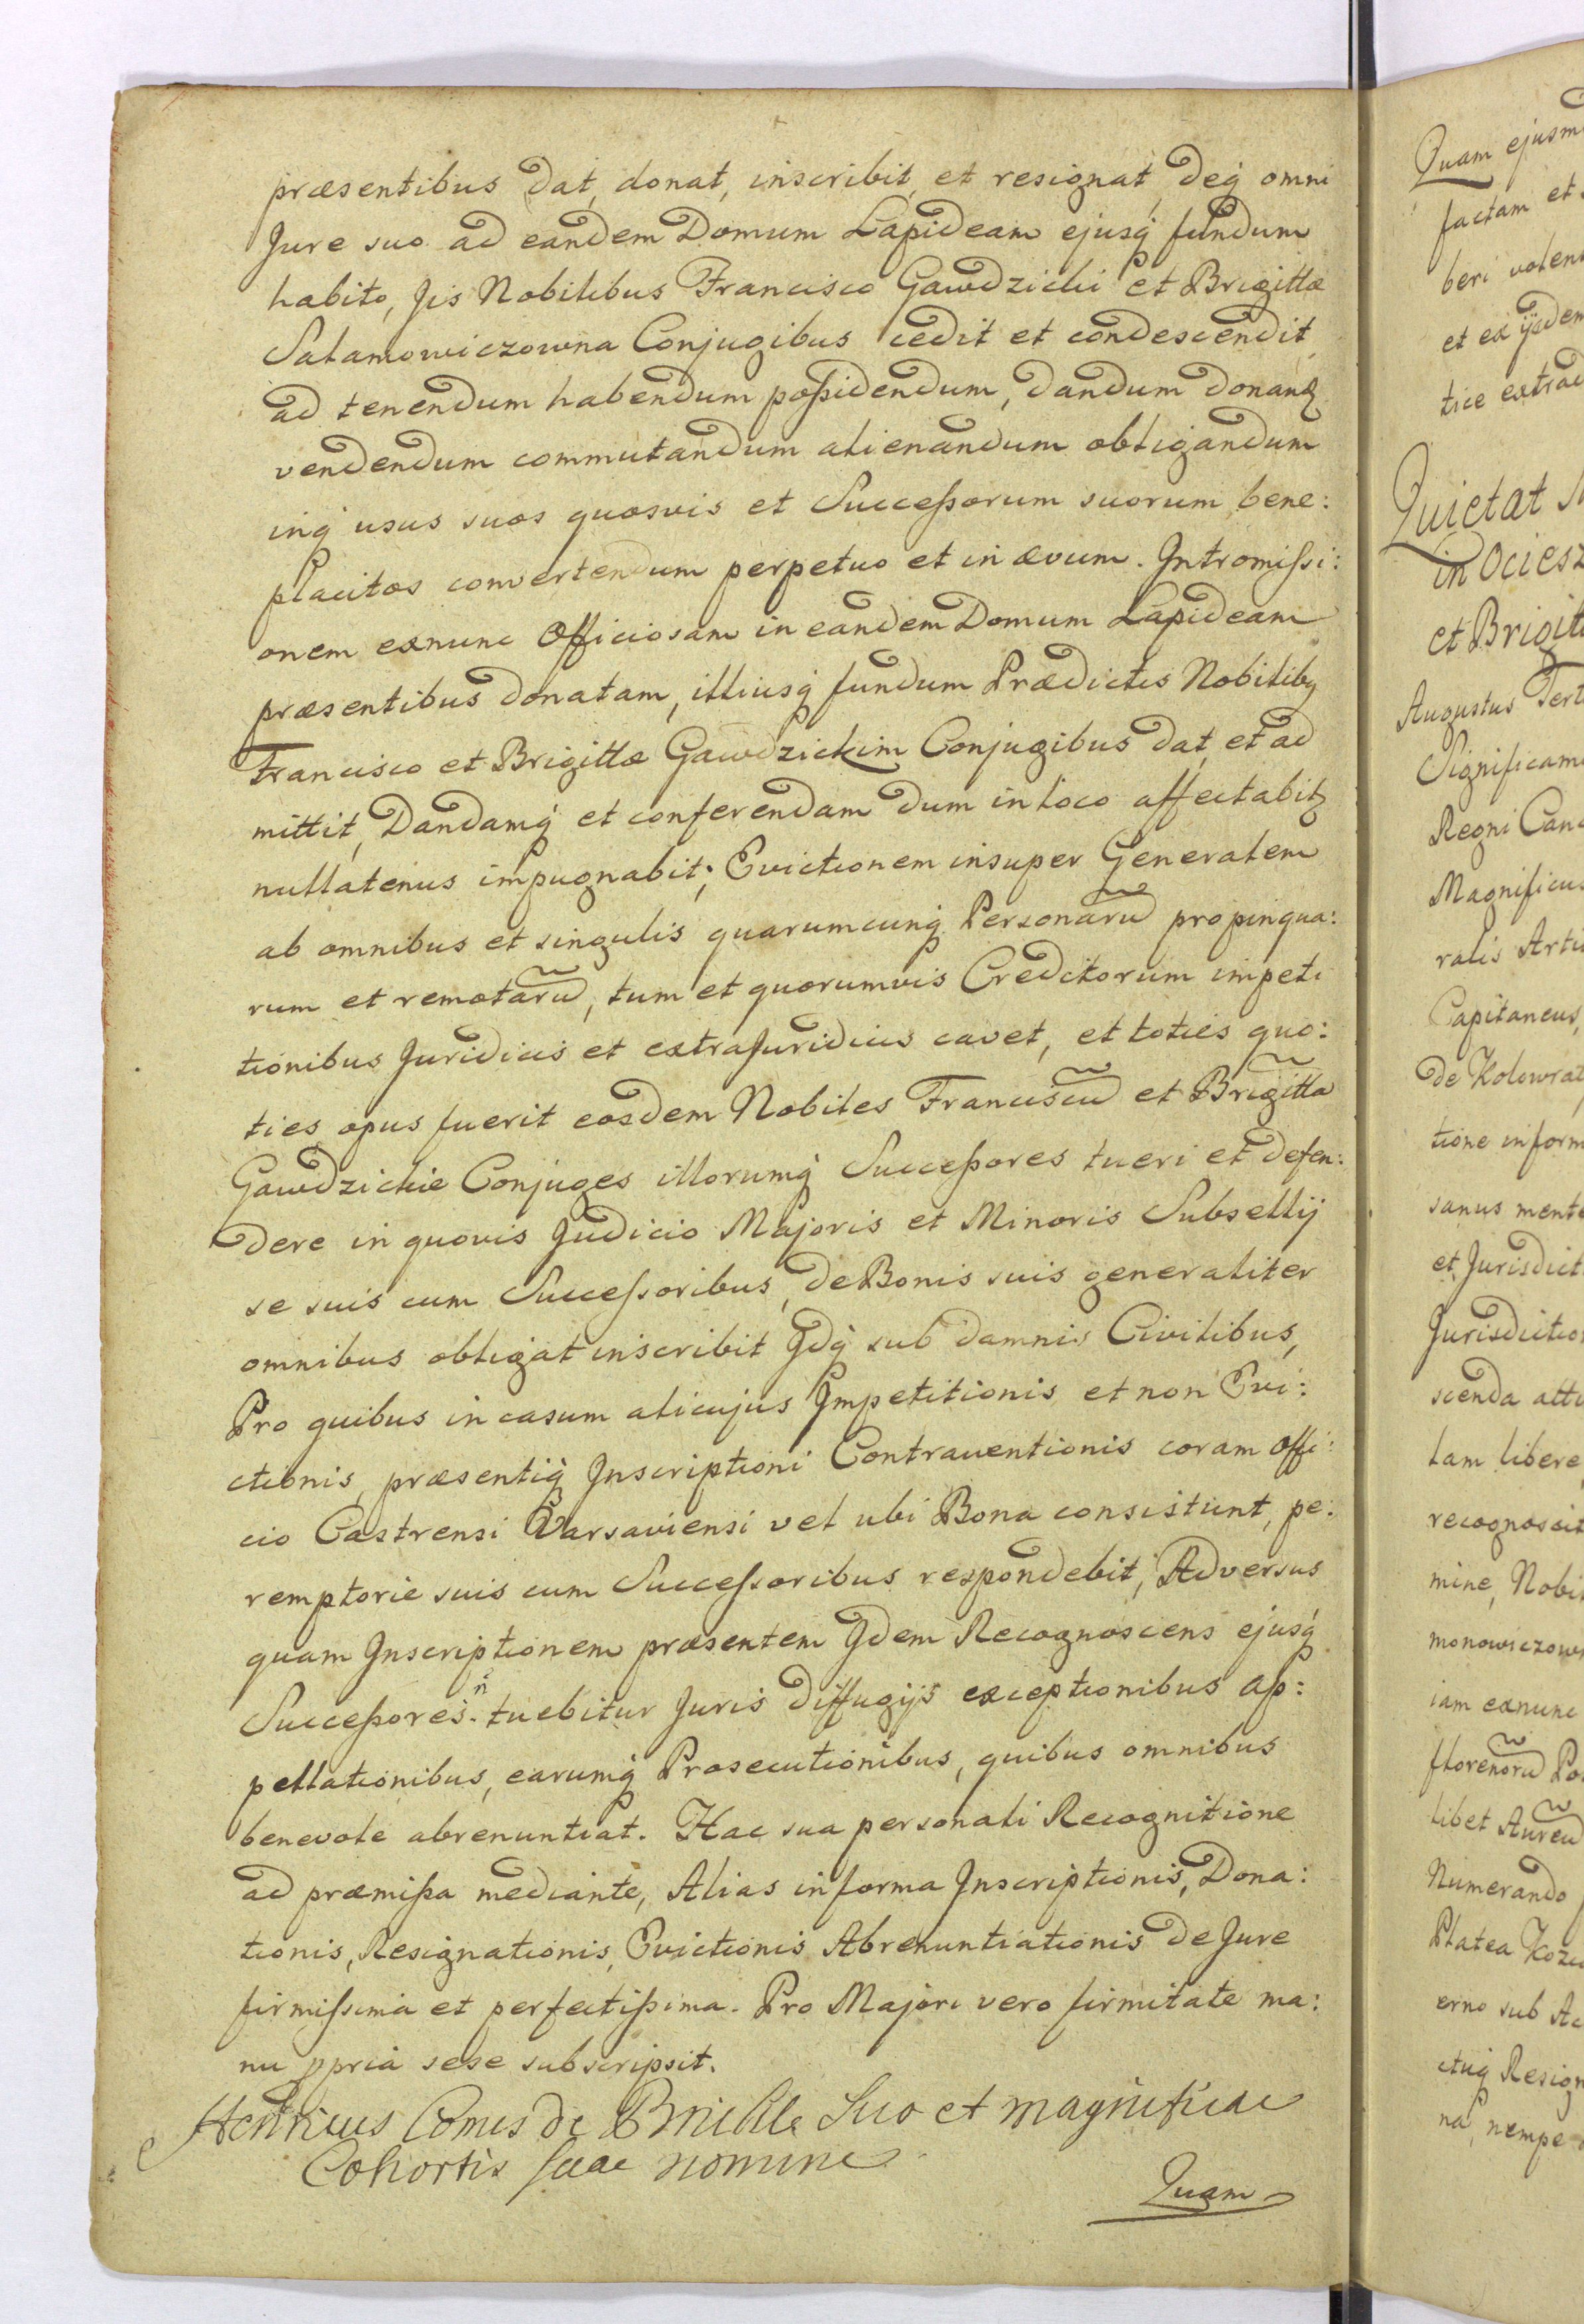 præsentibus dat, donat, inscribit, et resignat, deq́ omni
Jure suo ad eandem Domum Lapideam ejusq́ fundum
habito, Jis Nobilibus Francisco Gawdzicki et Brigittæ
Salamowiczowna Conjugibus cedit et condescendit
ad tenendum habendum poßidendum, dandum donand
vendendum commutandum alienandum obligandum
inq́ usus suos quosvis et Successorum suorum bene:
placitos convertendum perpetuo et in ævum. Intromissi:
onem exnunc Officiosam in eandem Domum Lapideam
præsentibus donatam, illiusq́ fundum Prædictis Nobilibq
Francisco et Brigittæ Gawdzickim Conjugibus dat, et ad
mittit, Dandamq́ et conferendam dum in loco affectabitz
nullatenus impugnabit; Evictionem insuper Generalem
ab omnibus et singulis quarumcunq́ Personarũ propinqua:
rum et remotarũ, tum et quorumvis Creditorum impeti
tionibus Juridicis et extraJuridicis cavet, et toties quo:
ties opus fuerit eosdem Nobiles Franciscũ et Brigittã
Gawdzickie Conjuges illorumq́ Succeßores tueri et defen:
dere in quovis Judicio Majoris et Minoris Subsellij
se suis cum Successoribus, de Bonis suis generaliter
omnibus obligat inscribit Idq́ sub damnis Civilibus,
Pro quibus in casum alicujus Impetitionis et non Evi:
ctionis, præsentiq́ Inscriptioni Contraventionis coram Offi:
cio Castrensi Varsaviensi vel ubi Bona consistunt, pe:
remptorie suis cum Successoribus respondebit, Adversus
quam Inscriptionem præsentem Idem Recognoscens ejusq́
Succeßores ñ tuebitur Juris diffugijs exceptionibus ap:
pellationibus, earumq́ Prosecutionibus, quibus omnibus
benevole abrenuntiat. Hac sua personali Recognitione
ad præmißa mediante, Alias in forma Inscriptionis, Dona:
tionis, Resignationis, Evictionis Abrenuntiationis de Jure
firmissima et perfectißima. Pro Majori vero firmitate ma:
nu ppria sese subscripsit.
Henricus Comes de Brühl Suo et magnificae
Cohortis suae nomine
Quam
Quam ejusm
factam et
beri volen
et ex ijsdem
tice extrad
Quietat
in Ociesz
et Brigit
Augustus Tert
Significam
Regni Canc
Magnificus
ralis Arti
Capitaneus,
de Kolowrat
tione inform
sanus mente
et Jurisdict
Jurisdictio
scenda atti
lam libere
recognoscit
mine, Nobi
monowiczow
iam exnunc
florenorũ Po
libet Aureũ
Numerando
Platea Kozi
erno sub
ctuq́ Resign
na, nempe